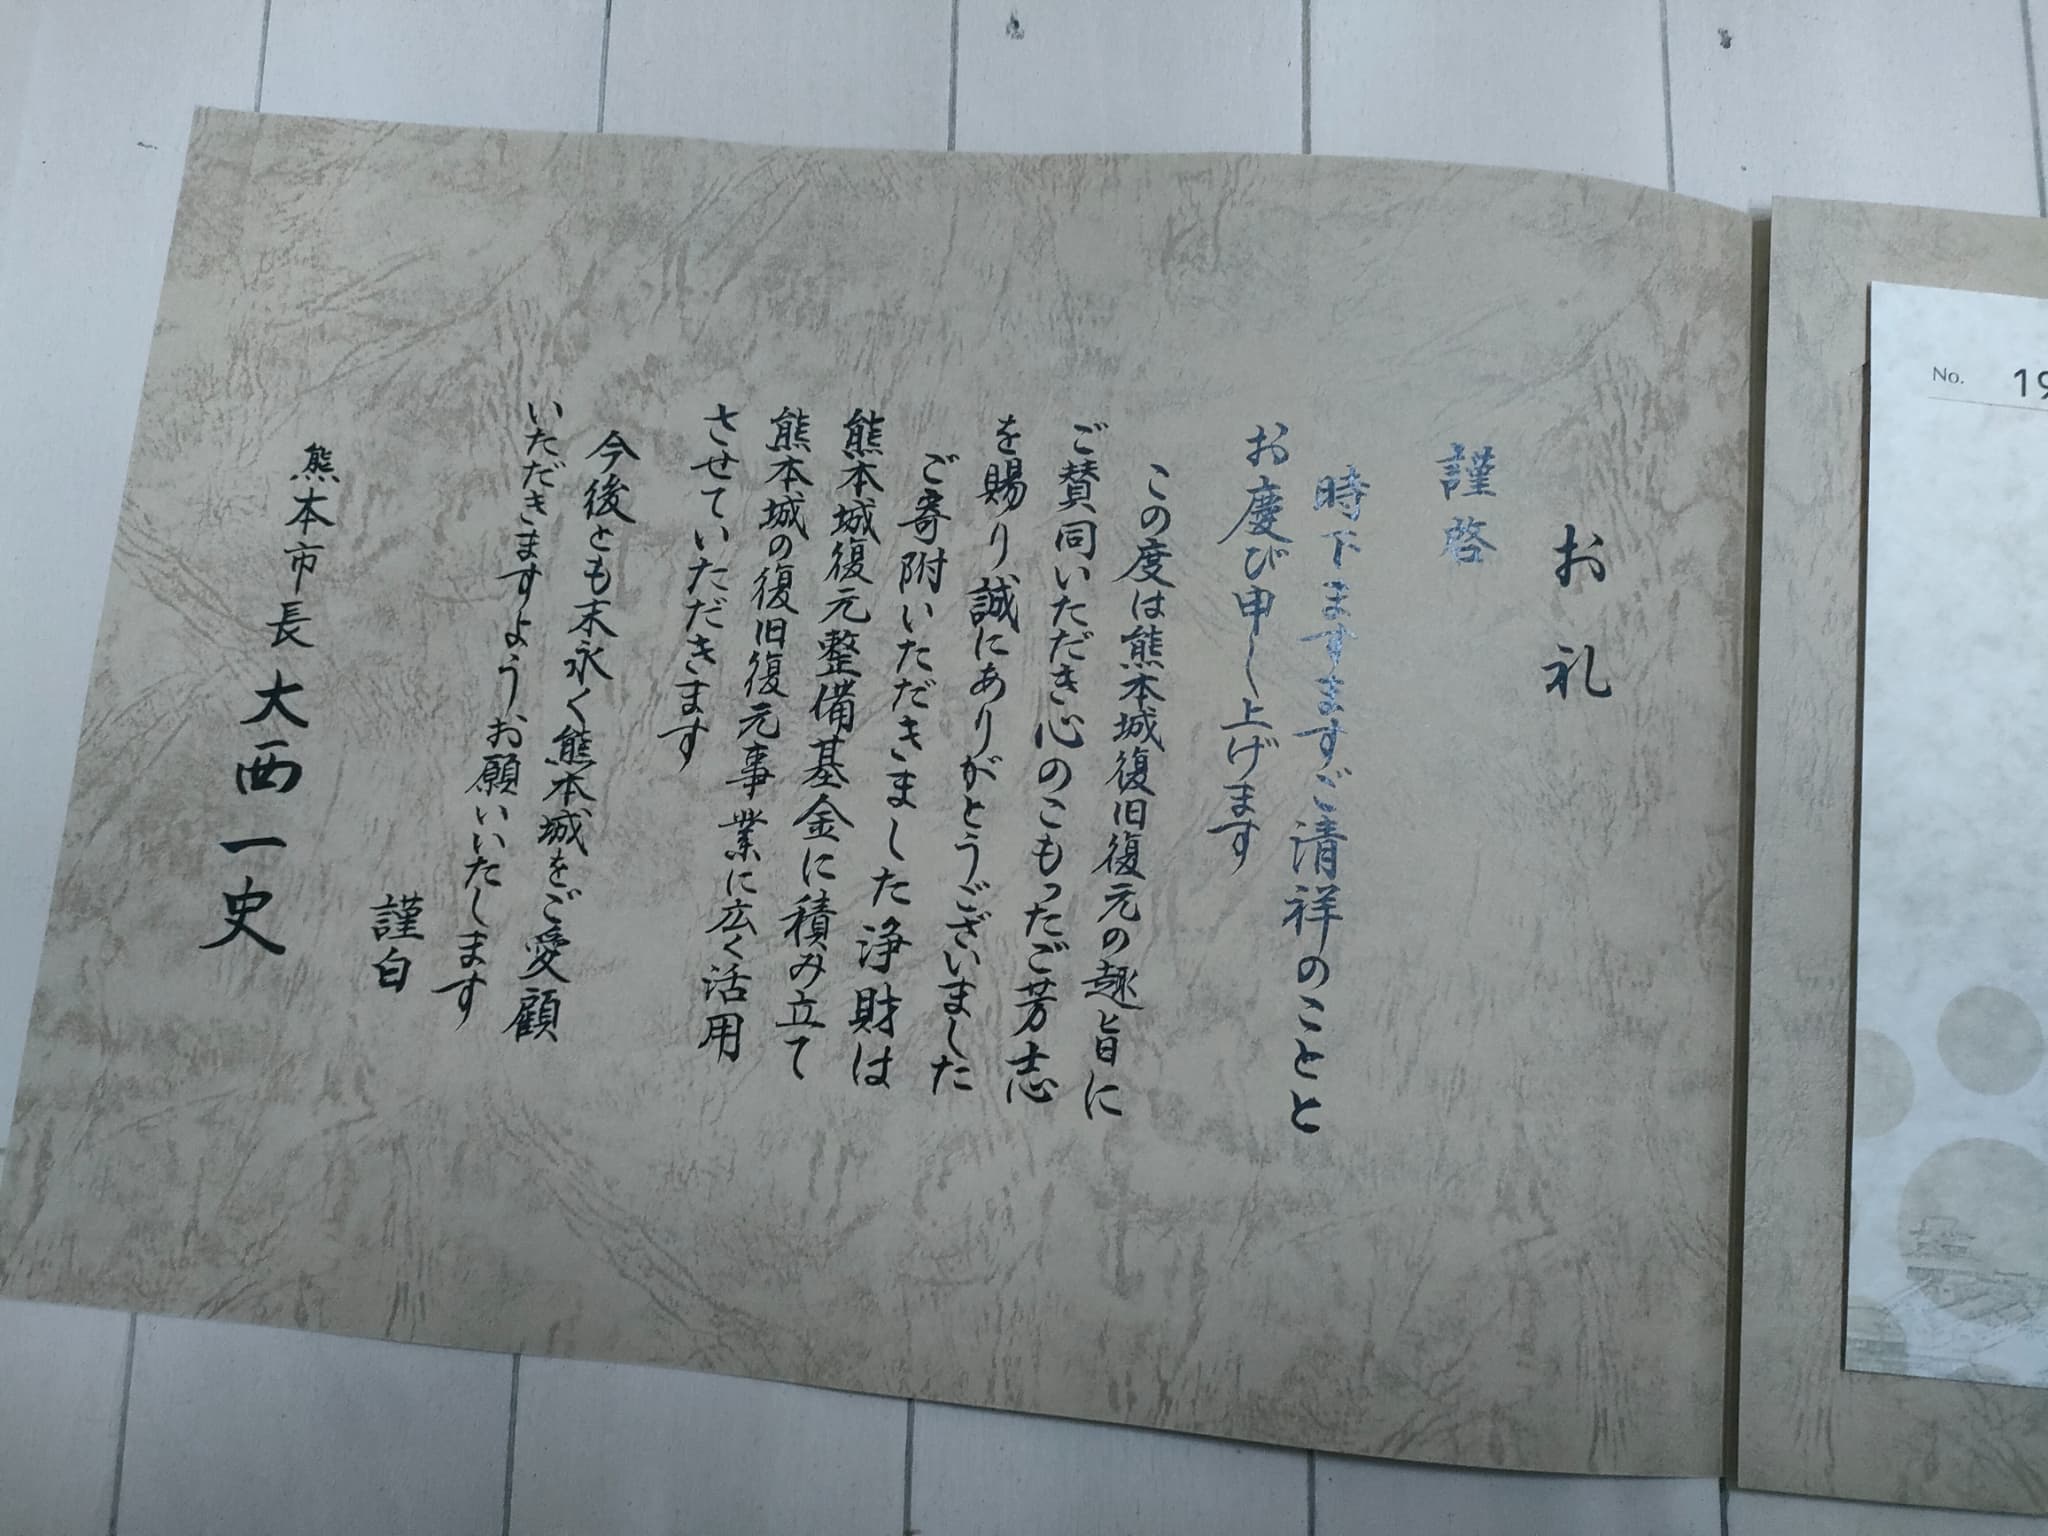 お礼
謹啓
時下ますますご清祥のことと
お慶び申し上げます
この度は熊本城復旧復元の趣旨に
ご賛同いただき心のこもったご芳志
を賜り、誠にありがとうございました
ご寄附いただきました浄財は
熊本城復元整備基金に積み立て
熊本城の復旧復元事業に広く活用
させていただきます
今後とも末永く熊本城をご愛顧
いただきますようお願いいたします
謹白
熊本市長 大西一史
No. 19